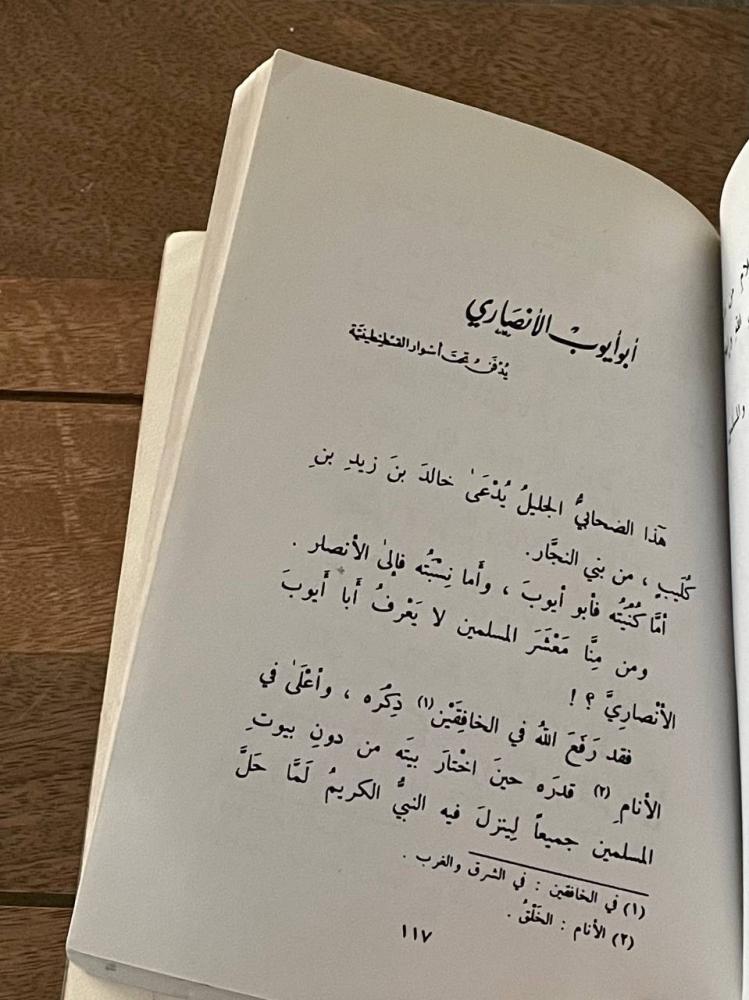 أبو أيوب الأنصاري
يُدْفَنُ تحتَ أسوار القسْطنطينيَّة
هٰذا الصَحابيُّ الجليلُ يُدْعَىٰ خالدَ بنَ زيدِ بنِ
كُلَيبٍ ، من بني النجَّار.
أمَّا كُنْيَتُه فأبو أيوبَ ، وأَما نِسْبَتُه فإلىٰ الأنصار .
ومن مِنَّا مَعْشَرَ المسلمين لا يَعْرِفُ أَبا أَيوبَ
الأنْصاريَّ ؟ !
فقد رَفَعَ اللهُ في الخافِقَيْن(١) ذِكْرَه ، وأعْلَىٰ في
الأنامِ (٢) قدرَه حينَ اخْتارَ بيتَه من دونِ بيوتِ
المسلمين جميعاً لِينزلَ فيه النبيُّ الكريمُ لَمَّا حَلَّ
(١) في الخافقين : في الشرق والغرب .
(٢) الأنام : الخَلْقُ .
١١٧